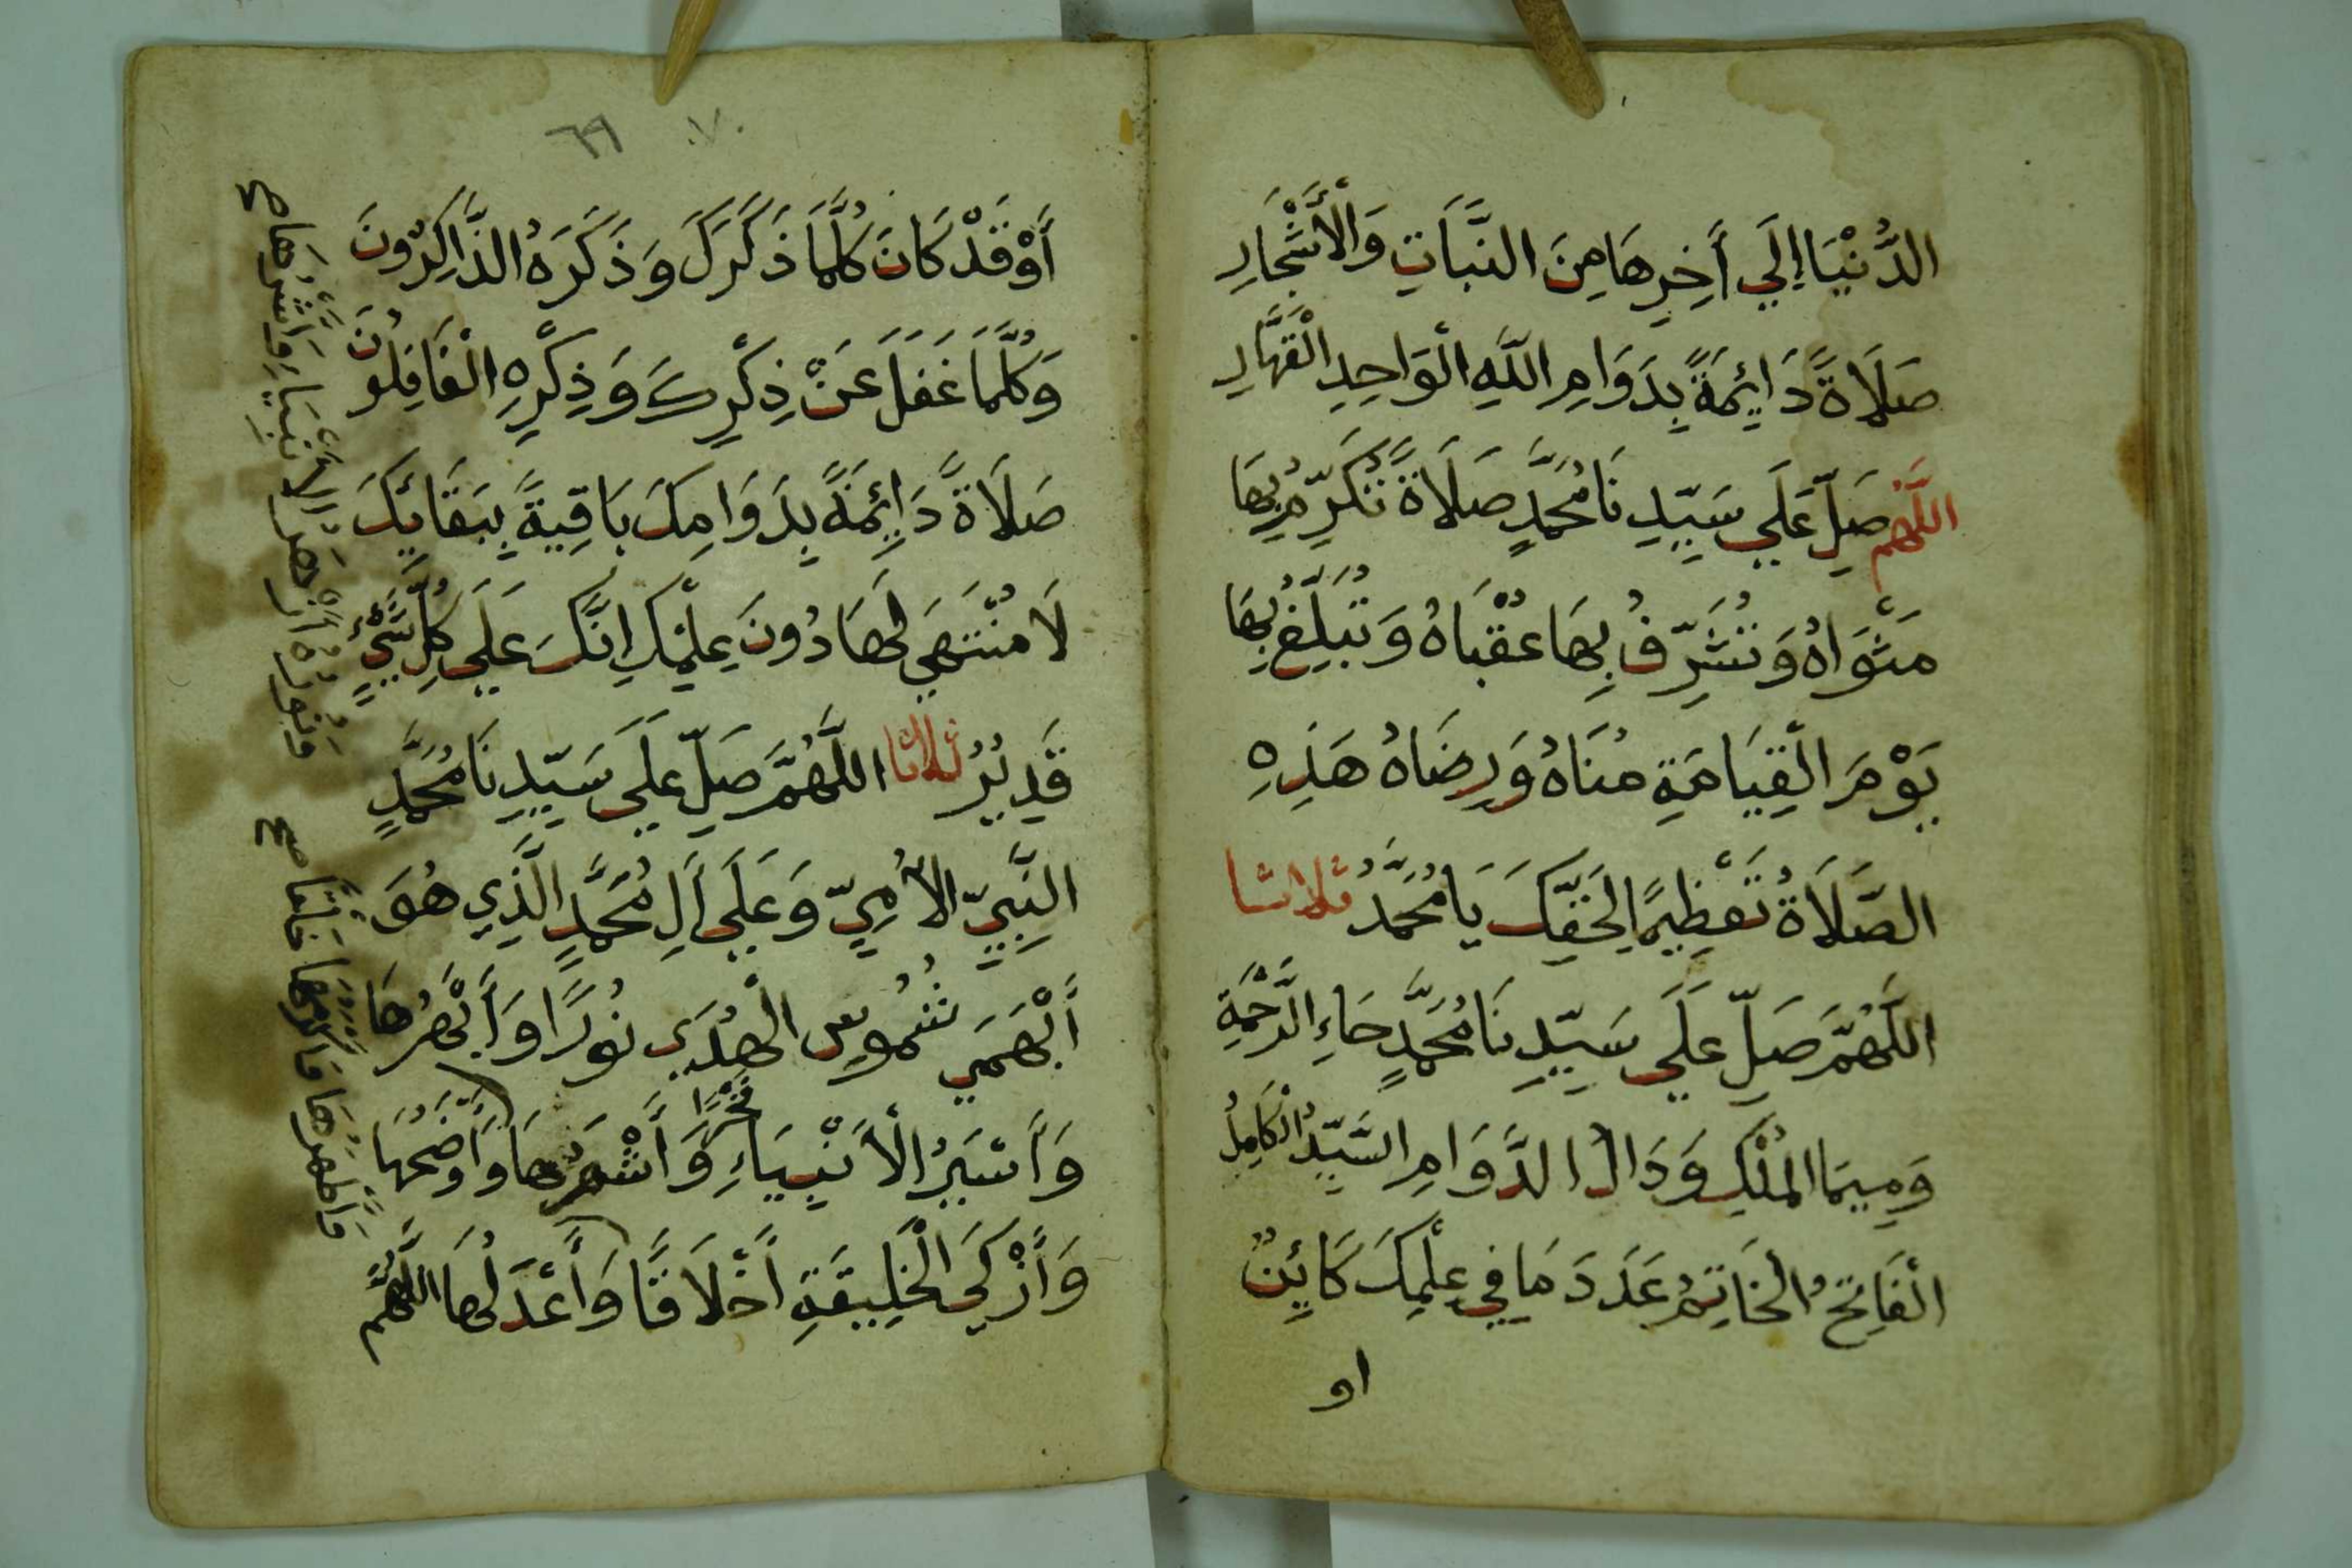 الدُّنْيَا إِلَي أَخِرِهَا مِنَ النَّبَاتِ وَالْأَشْجَارِ
صَلَاةً دَائِمَةً بِدَوَامِ اللَّهِ الْوَاحِدِ الْقَهَّارِ
اللَّهُمَّ صَلِّ عَلَي سَيِّدِنَا مُحَمَّدٍ صَلَاةً تُكَرِّمُ بِهَا
مَثْوَاهُ وَتُشَرِّفُ بِهَا عُقْبَاهُ وَتُبَلِّغُ بِهَا
يَوْمَ الْقِيَامَةِ مُنَاهُ وَرِضَاهُ هَذِهِ
الصَّلَاةُ تَعْظِيمًا لِحَقِّكَ يَا مُحَمَّدُ ثلاثا
اللَّهُمَّ صَلِّ عَلَي سَيِّدِنَا مُحَمَّدٍ حَاءِ الرَّحْمَةِ
وَمِيمَا الْمُلْكِ وَدَالُ الدَّوَامِ السَّيِّدُ الْكَامِلُ
الْفَاتِحُ الْخَاتِمُ عَدَدَ مَا فِي عِلْمِكَ كَائِنٌ
او
٦٩ ٧٠
أَوْ قَدْ كَانَ كُلَّمَا ذَكَرَكَ وَذَكَرَهُ الذَّاكِرُونَ
وَكُلَّمَا غَفَلَ عَنْ ذِكْرِكَ وَذِكْرِهِ الْغَافِلُونَ
صَلَاةً دَائِمَةً بِدَوَامِكَ بَاقِيَةً بِبَقَائِكَ
لَا مُنْتَهَي لَهَا دُونَ عِلْمِكَ اِنَّكَ عَلَي كُلِّ شَيْءٍ
قَدِيرٌ ثلاثا اللَّهُمَّ صَلِّ عَلَي سَيِّدِنَا مُحَمَّدٍ
النَّبِيِّ الْأُمِّيِّ وَعَلَي أَلِ مُحَمَّدٍ الَّذِي هُوَ
أَبْهَي شُمُوسِ الْهُدَي نُورًا وَأَبْهَرُهَا
وَأَسْيَرُ الْأَنْبِيَاءِ فَخْرًا وَأَشْهَرُهَا وَأَوْضَحُهَا
وَأَزْكَي الْخَلِيقَةِ أَخْلَاقًا وَأَعْدَلُهَا اللَّهُمَّ
وَنُورُهُ أَزْهَرُ الْأَنْبِيَاءِ وَأَشْرَفُهَا صح
وَأَطْهَرُهَا وَأَكْرَمُهَا خَلْقًا صح